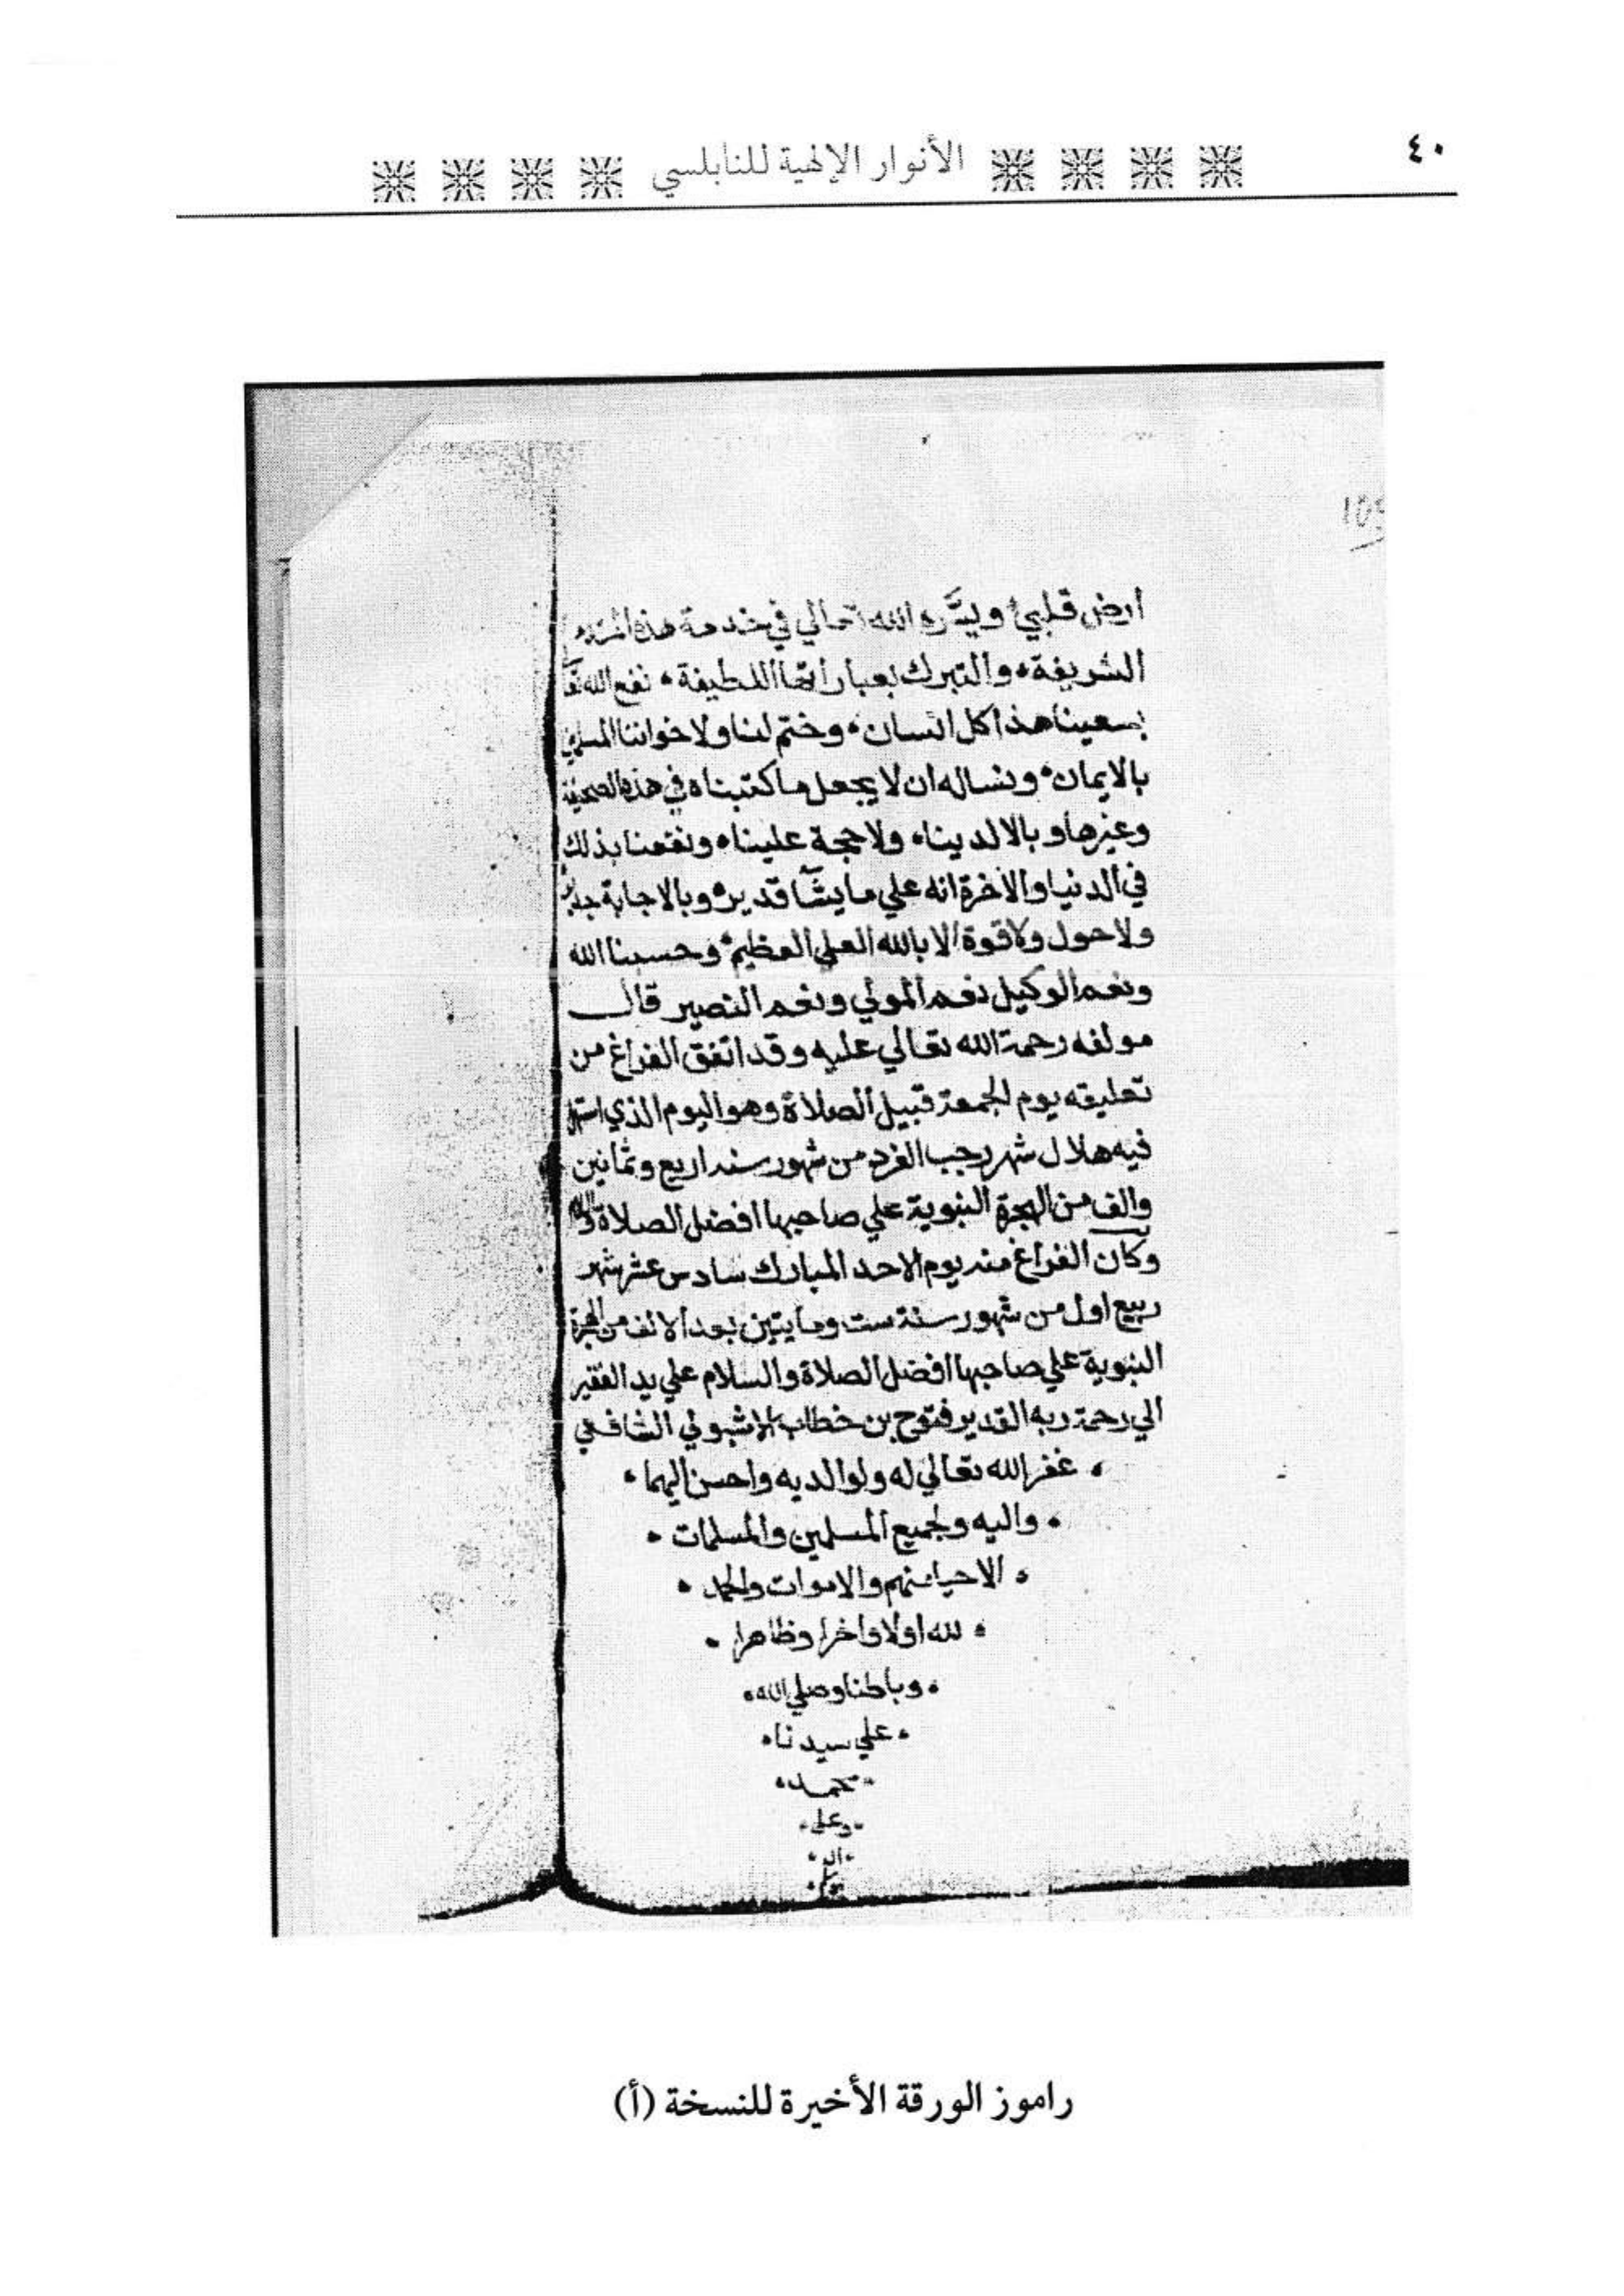 ٤٠
الأنوار الإلهية للنابلسي
ارض قلبي ويسره الله تعالي في خدمة هذه
الشريفة والتبرك بعباراتها اللطيفة نفع الله تعا
بسعينا هذا كل انسان وختم لنا ولاخواننا المسلمين
بالايمان ونساله ان لا يجعل ما كتبناه في هذه الصحيفة
وغيرها وبالا لدينا ولا حجة علينا ونفعنا بذلك
في الدنيا والاخرة انه علي ما يشا قدير وبالاجابة جدير
ولا حول ولا قوة الا بالله العلي العظيم وحسبنا الله
ونعم الوكيل نعم المولي ونعم النصير قال
مولفه رحمة الله تعالي عليه وقد اتفق الفراغ من
تعليقه يوم الجمعة قبيل الصلاة وهو اليوم الذي استهل
فيه هلال شهر رجب الفرد من شهور سنه اربع وثمانين
والف من الهجرة النبوية علي صاحبها افضل الصلاة
وكان الفراغ منه يوم الاحد المبارك سادس عشر شهر
ربيع اول من شهور سنة ست ومايتين بعد الالف من الهجرة
النبوية علي صاحبها افضل الصلاة والسلام علي يد الفقير
الي رحمة ربه القدير فتوح بن خطاب الاشبولي الشافعي
غفر الله تعالي له ولوالديه واحسن اليهما
واليه ولجميع المسلمين والمسلمات
الاحيا منهم والاموات والحمد
لله اولا واخرا وظاهرا
وباطنا وصلي الله
علي سيدنا
محمد
وعلي
اله
راموز الورقة الأخيرة للنسخة (أ)